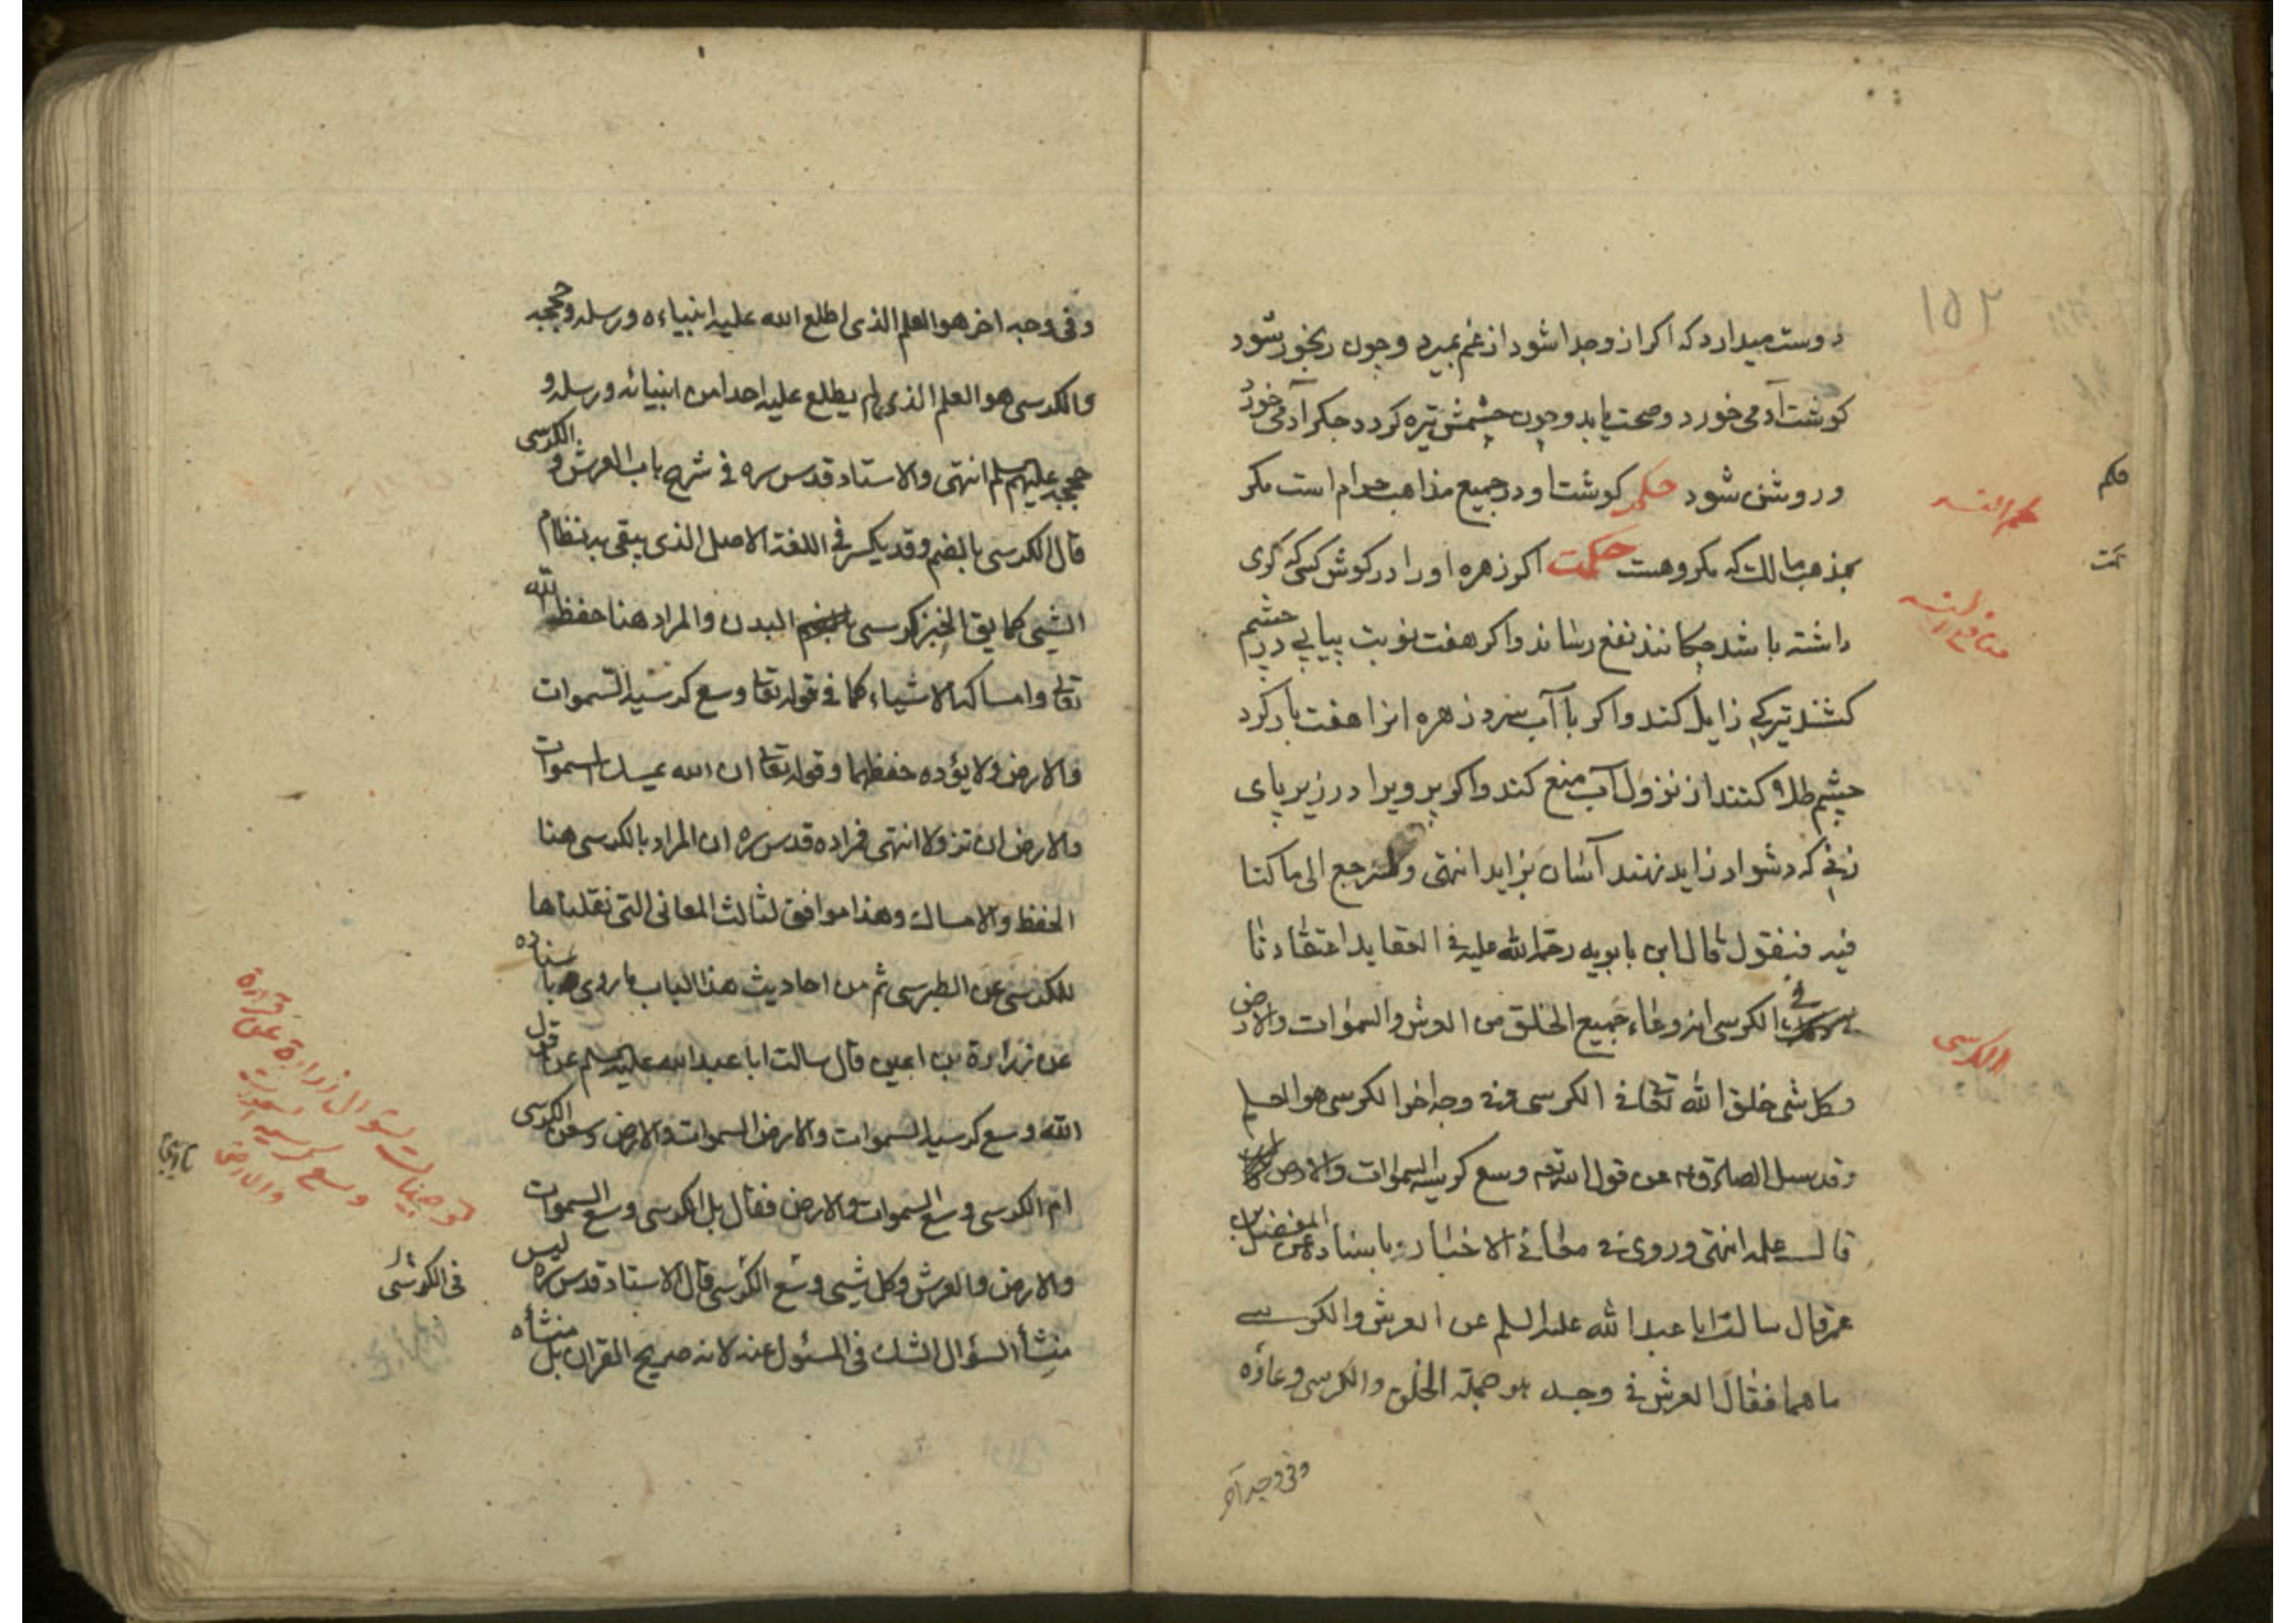 ١٥٢
دوست میدارد که اکر از وجدا شود از غم بمیرد وچون رنجور شود
کوشت آدمی خورد وصحت یابد وچون چشمش تیره کردد جکر آدمی خورد
وروشن شود حکم کوشت او در جمیع مذاهب حرام است مکر
بمذهب مالک که مکروهست حکمت اکر زهره او را در کوش کسی که کری
داشته باشد چکانند نفع رساند واکر هفت نوبت پیاپی در چشم
کشند تیرکی زایل کند واکر با آب سرد زهره انرا هفت بار کرد
چشم طلا کنند از نزول آب منع کند واکر پر ویرا در زیر پای
زنی که دشوار زاید نهند آسان بزاید انتهی ولنرجع الی ما کنا
فیه فنقول قال ابن بابویه رحمه الله علیه فی العقاید اعتقادنا
فی الکرسی انه وعاء جمیع الخلق من العرش والسموات والارض
وکل شی خلق الله تعالی فی الکرسی وفی وجه اخر الکرسی هو العلم
وقد سئل الصادق ع عن قول الله تعم وسع کرسیه السموات والارض
قال علمه انتهی وروی فی معانی الاخبار باسناده عن المفضل بن
عمر قال سالت ابا عبد الله علیه السلم عن العرش والکرسی
ما هما فقال العرش فی وجه هو جملة الخلق والکرسی وعاؤه
وفی وجه آخر
حکم
الکرسی
وفی وجه اخر هو العلم الذی اطلع الله علیه انبیاءه ورسله وحججه
والکرسی هو العلم الذی لم یطلع علیه احدا من انبیائه ورسله و
حججه علیهم السلم انتهی والاستاد قدس سره فی شرح باب العرش والکرسی
قال الکرسی بالضم وقد یکسر فی اللغة الاصل الذی یبقی به نظام
الشیی کما یق الخبز کرسی البدن والمراد هنا حفظ الله
تعالی وامساکه الاشیاء کما فی قوله تعالی وسع کرسیه السموات
والارض ولا یؤده حفظهما وقوله تعالی ان الله یمسک السموات
والارض ان تزولا انتهی فمراده قدس سره ان المراد بالکرسی هنا
الحفظ والامساک وهذا موافق لثالث المعانی التی نقلناها
للکرسی عن الطبرسی ثم من احادیث هذا الباب ما روی باسناده
عن زرارة بن اعین قال سالت ابا عبد الله علیه السلم عن قول
الله وسع کرسیه السموات والارض السموات والارض وسعن الکرسی
ام الکرسی وسع السموات والارض فقال بل الکرسی وسع السموات
والارض والعرش وکل شیی وسع الکرسی قال الاستاد قدس سره لیس
منشأ السؤال الشک فی المسئول عنه لانه صریح القران بل منشأه
توجیهات لسؤال زرارة عن قراءة
وسع کرسیه السموات
والارض
فی الکرسی